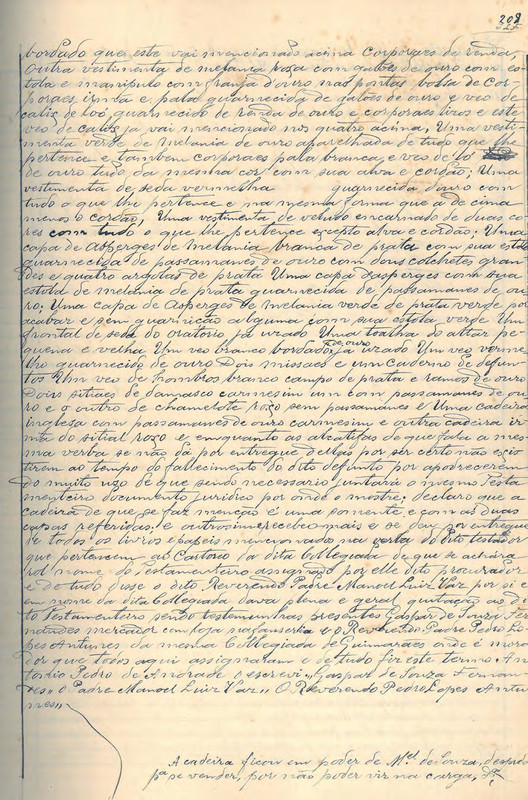 208
bordado que este vai mencionado acima Corporaes de renda,
Outra vestimenta de melania roza com galões de ouro com es-
tola e manipulo com franja d'ouro nas pontas bolsa de Cor-
poraes irmã e pala guarnecida de galões de ouro e veo de
calis de ló, guarnecido de renda de ouro e corporaes lizos e este
veo de calis já vai mencionado nos quatro acima, Uma vesti-
menta verde de Melania de ouro aparelhada de tudo que lhe
pertence e tambem corporaes pala branca, e veo de ló
de ouro tudo da mesma cor com sua alva e cordão; Uma
vestimenta de seda vermelha guarnecida d'ouro com
tudo o que lhe pertence e na mesma forma que a de cima
menos o cordão, Uma vestimenta de veludo encarnado de duas co-
res com tudo o que lhe pertence excepto alva e cordão; Uma
capa de Asperges de Melania branca de prata com sua estola
guarnecida de passamanes de ouro com dous colchetes gran-
des e quatro argolas de prata Uma capa d'asperges com sua
estola de melania de prata guarnecida de passamanes de ou-
ro; Uma capa de Asperges de Melania verde de prata verde por
acabar e sem guarnição alguma com sua estola verde Um
frontal de seda do oratorio já uzado Uma toalha do altar pe-
quena e velha Um veo branco bordado de ouro já uzado Um veo verme-
lho guarnecido de ouro Dois missaes e um caderno de defun-
tos Um veo de hombros branco campo de prata e ramos de ouro
Dois sitiaes de damasco carmesim um com passamanes de ou-
ro e o outro de chamelote roxo sem passamanes e Uma cadeira
ingleza com passamanes de ouro carmesim e outra cadeira ir-
mã do sitial roxo e emquanto as alcatifas de que fala a mes-
ma verba se não dá por entregue dellas por ser certo não exis-
tirem ao tempo do fallecimento do dito defunto por apodrecerem
do muito uzo de que sendo necessario juntará o mesmo Testa-
menteiro documento juridico por onde o mostre; declaro que a
cadeira de que se faz menção é uma somente e com as duas
capas referidas, e outrosim recebeo mais e se deu por entregue
de todos os livros e papeis mencionados na verba do dito testador
que pertencem ao Cartorio da dita Collegiada de que se achará
rol nome do Testamenteiro assignado por elle dito procurador
e de tudo disse o dito Reverendo Padre Manoel Luiz Vaz por si e
em nome da dita Collegiada dava plena e geral quitação ao di-
to Testamenteiro sendo testemunhas presentes Gaspar de Souza Fer-
nandes mercador com loja na fanseria e o Reverendo Padre Pedro Lo-
pes Antunes da mesma Collegiada de Guimarães onde é mora-
dor que todos aqui assignaram e de tudo fiz este termo. An-
tonio Pedro de Andrade o escrevi, Gaspar de Souza Fernan-
des,, O Padre Manoel Luiz Vaz,, O Reverendo Pedro Lopes Antu-
nes,,
A cadeira ficou em poder de Mel de Souza,
pa se vender, por não poder vir na carga,